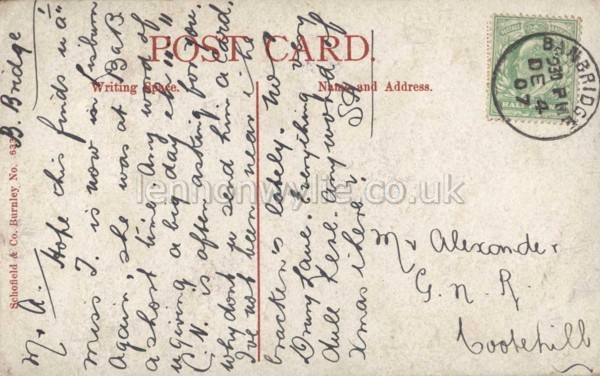 POST CARD.
Writing Space.
Name and Address.
Schofield & Co. Burnley No. 63
BANBRIDGE
PM
DE 4
07
B. Bridge
Mr A. Hope this finds u "a 1"
Miss T. is now in Lisburn
Again, she was at BaB
a short time. Any word of
u giving a big day etc " "
C. N. is often asking for you.
why dont u send him a card.
I've not been near the
brackens lately. No
Drury Lane. Everything very
dull here. Any word of
Xmas it here?
Mr Alexander
G. N. R.
Cootehill
lennonwylie.co.uk